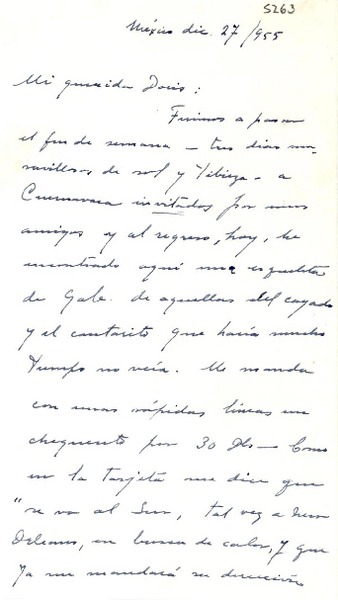 5263
México dic. 27/955
Mi querida Doris:
Fuimos a pasar
el fin de semana — tres días ma-
ravillosos de sol y tibieza — a
Cuernavaca invitados por unos
amigos y al regreso, hoy, he
encontrado aquí una esquelita
de Gabr. de aquellas del cayado
y el cantarito que hacía mucho
tiempo no veía. Me manda
con unas rápidas líneas un
chequecito por 30 Dls — Como
en la tarjeta me dice que
"se va al Sur, tal vez a New
Orleans, en busca de calor, y que
ya me mandará su dirección